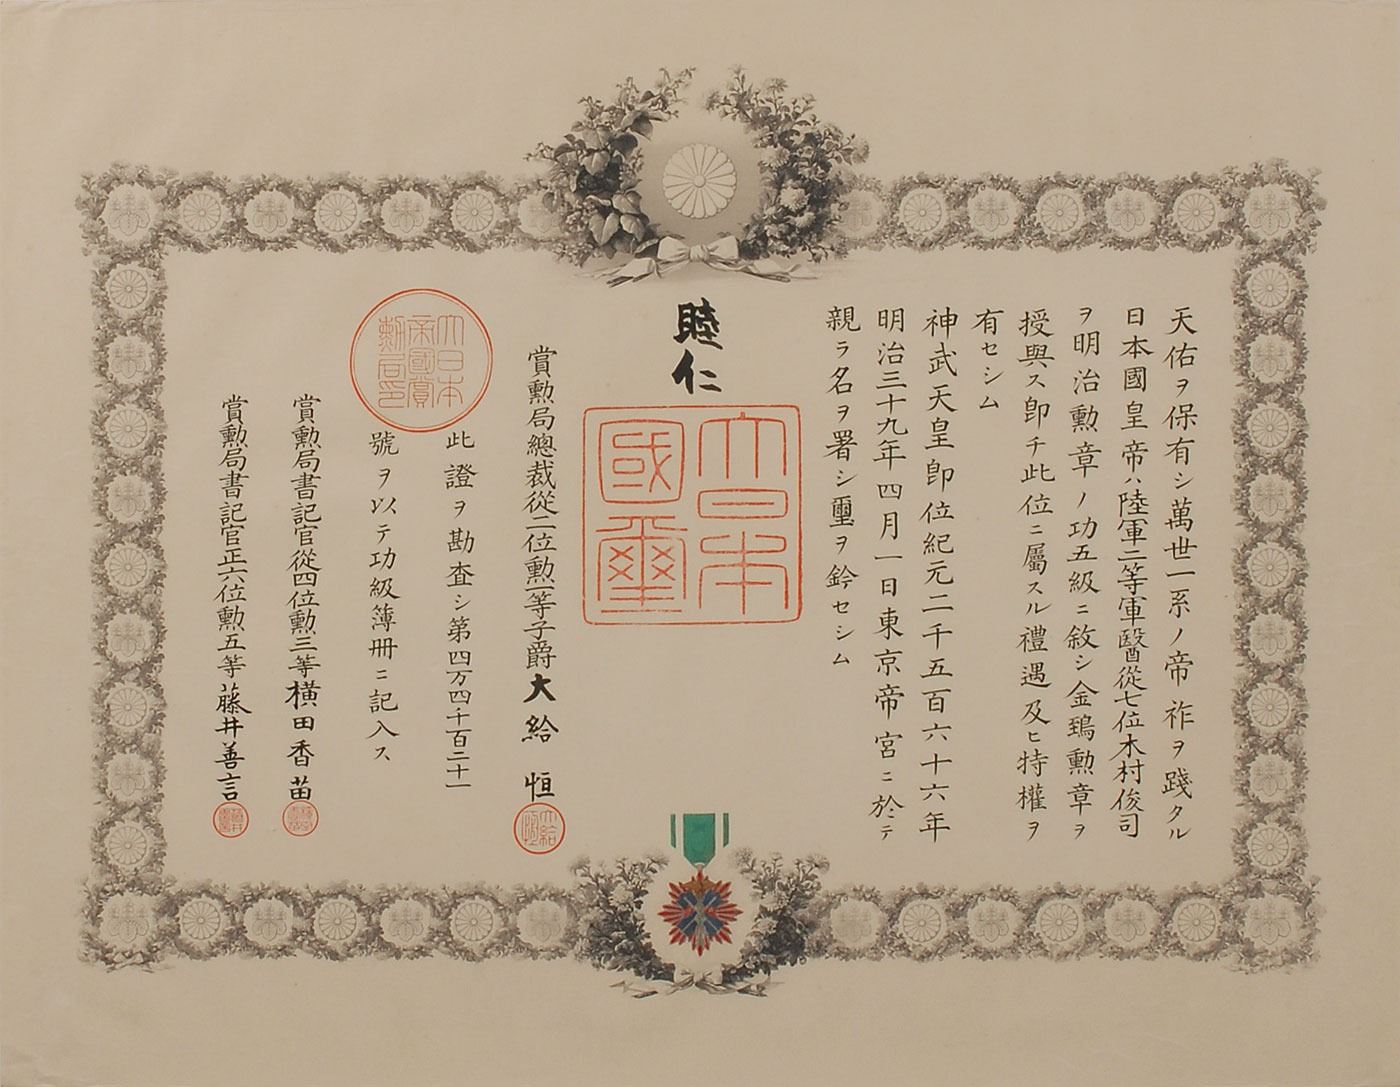 天佑ヲ保有シ萬世一系ノ帝祚ヲ踐タル
日本國皇帝ハ陸軍二等軍醫從七位木村俊司
ヲ明治勲章ノ功五級ニ敘シ金鵄勲章ヲ
授與ス卽チ此位ニ屬スル禮遇及ヒ特權ヲ
有セシム
神武天皇卽位紀元二千五百六十六年
明治三十九年四月一日東京帝宮ニ於テ
親ラ名ヲ署シ璽ヲ鈐セシム
睦仁
大日本
國璽
賞勲局總裁從二位勲一等子爵大給恒
大日本
帝國賞
勲局印
此證ヲ勘査シ第四万四千百二十一
號ヲ以テ功級簿册ニ記入ス
賞勲局書記官從四位勲三等横田香苗
賞勲局書記官正六位勲五等藤井善言